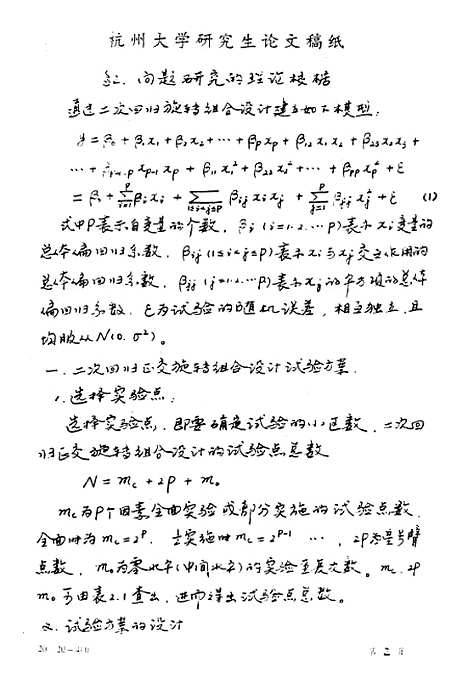 杭州大学研究生论文稿纸
问题研究的理论根据
通过二次回归旋转组合设计建立如下模型:
y = β₀ + β₁x₁ + β₂x₂ + ⋯ + βₚxₚ + β₁₂x₁x₂ + β₂₃x₂x₃ +
⋯ + βₚ₋₁,ₚ xₚ₋₁xₚ + β₁₁x₁² + β₂₂x₂² + ⋯ + βₚₚxₚ² + ε
= β₀ + Σᵢ₌₁ᵖ βᵢxᵢ + Σ₁≤ᵢ<ⱼ≤ₚ βᵢⱼxᵢxⱼ + Σⱼ₌₁ᵖ βⱼⱼxⱼ² + ε (1)
式中P表示自变量的个数, βᵢ (i=1.2.…P)表示xᵢ变量的
总体偏回归系数, βᵢⱼ (1≤i<j≤P)表示xᵢ与xⱼ交互作用的
总体偏回归系数, βⱼⱼ (j=1.2.…P)表示xⱼ的平方项的总体
偏回归系数. ε为试验的随机误差, 相互独立, 且
均服从N(0. σ²)。
一. 二次回归正交旋转组合设计试验方案.
1. 选择实验点:
选择实验点, 即要确定试验的小区数, 二次回
归正交旋转组合设计的试验点总数
N = m_c + 2P + m₀
m_c为P个因素全面实验或部分实施的试验点数,
全面时为m_c=2ᴾ. 实施时m_c=2ᴾ⁻¹ …, 2P为星号臂
点数, m₀为零水平(中间水平)的实验重复次数。m_c. 2P
m₀可由表2.1查出, 进而得出试验点总数。
2. 试验方案的设计
20×20=400
第 2 页